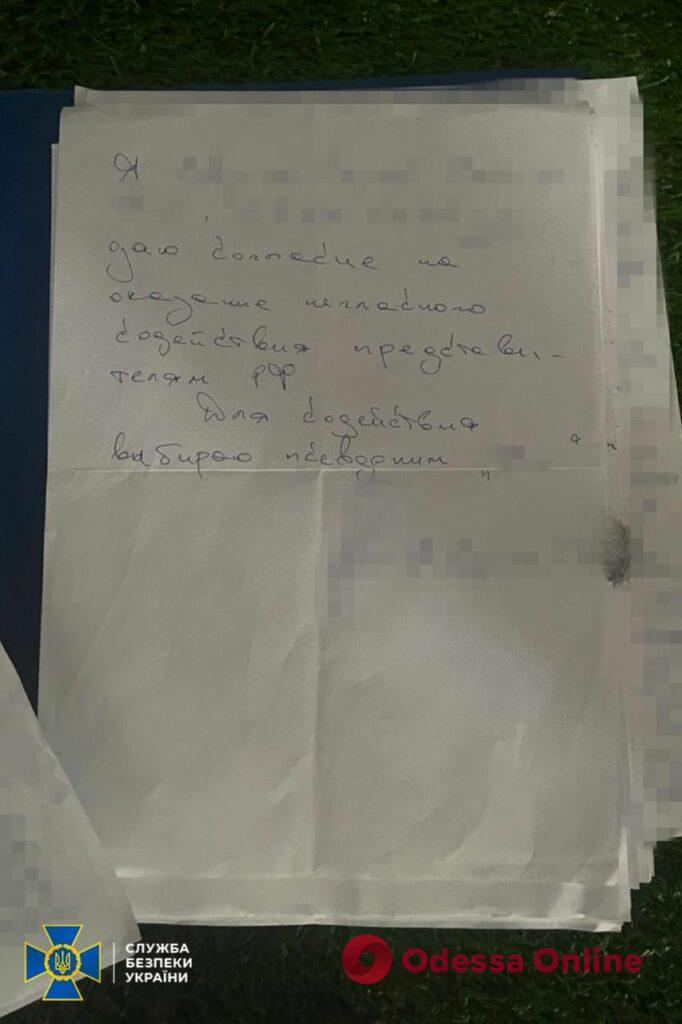 Я
даю согласие на
оказание негласного
содействия представи-
телям РФ
Для содействия
выбираю псевдоним "
СЛУЖБА
БЕЗПЕКИ
УКРАЇНИ
Odessa Online